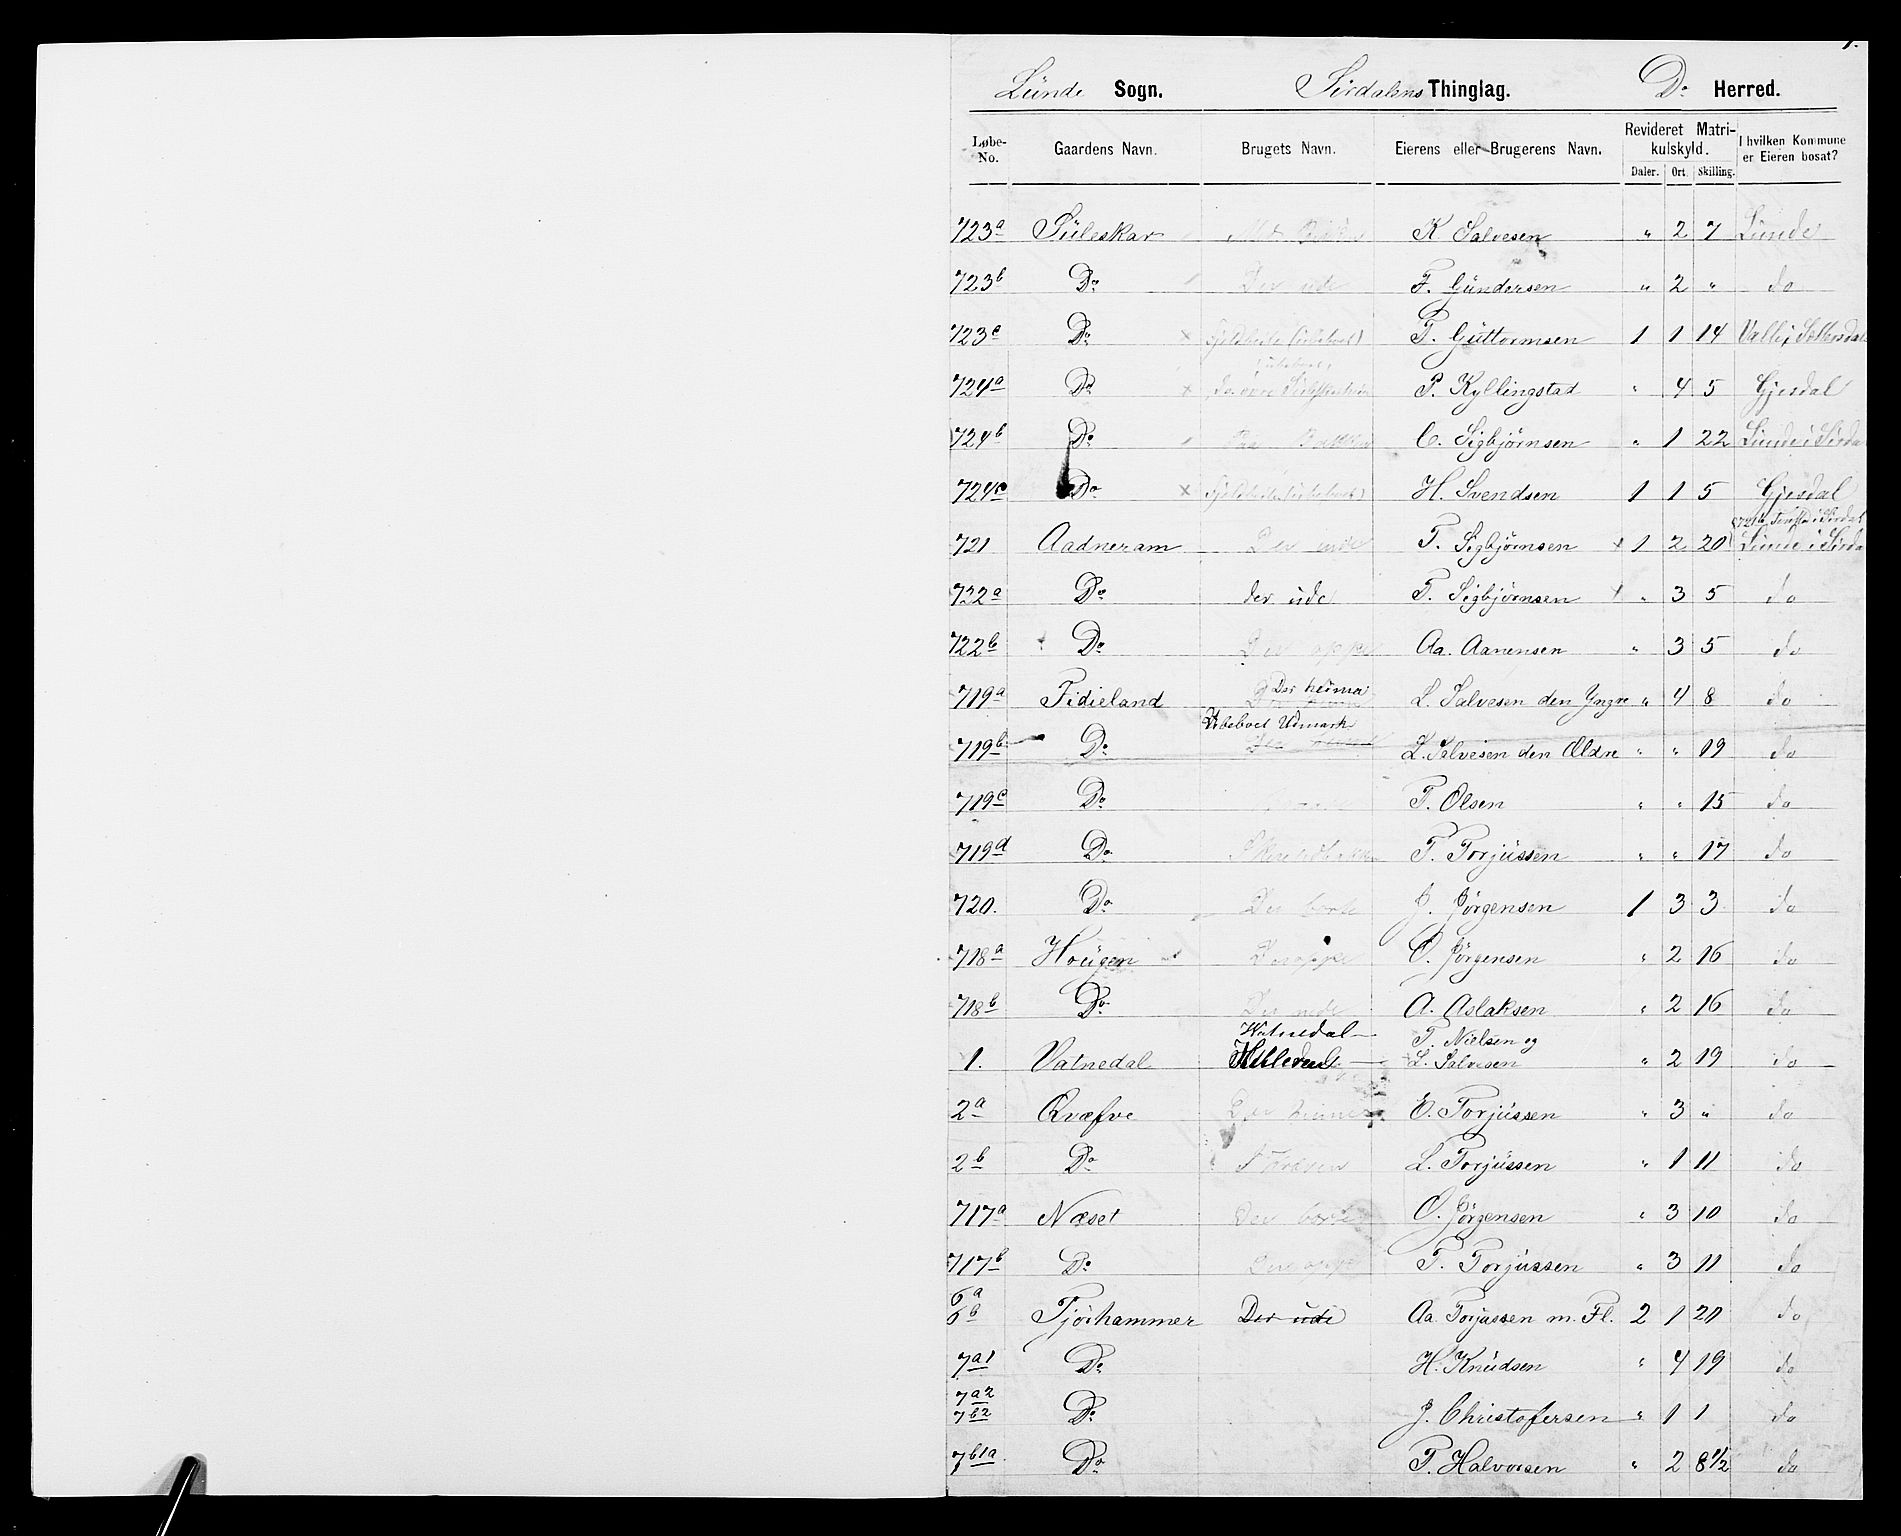 1.
Lunde Sogn. Sirdalens Thinglag. Do Herred.
Løbe-No. Gaardens Navn. Brugets Navn. Eierens eller Brugerens Navn. Revideret Matrikulskyld. I hvilken Kommune er Eieren bosat?
Daler. Ort. Skilling.
723a Suleskar K Salvesen " 2 7 Lunde
723b Do Der ude F. Gundersen " 2 " do
723c Do x T. Guttormsen 1 1 14 Valle i Sættersdal
724a Do x P. Kyllingstad " 4 5 Gjesdal
724b Do Paa Bakken C. Sigbjørnsen " 1 22 Lunde i Sirdal
724c Do x H. Svendsen 1 1 5 Gjesdal
721 Aadneram Der inde T. Sigbjørnsen x 1 2 20 Lunde i Sirdal
722a Do der ude T. Sigbjørnsen x " 3 5 do
722b Do Der oppe Aa. Aanensen " 3 5 do
719a Fidjeland Der heima L. Salvesen den Yngre " 4 8 do
Ubeboet Udmark
719b Do L. Salvesen den Ældre " " 19 do
719c Do T. Olsen " " 15 do
719d Do T. Torjussen " " 17 do
720. Do Der borte J. Jørgensen 1 3 3 do
718a Hougen Der oppe O. Jørgensen " 2 16 do
718b Do Der nede A. Aslaksen " 2 16 do
Watnedal T. Nielsen og
1. Vatnedal L. Salvesen " 2 19 do
2a Qvæfve E. Torjussen " 3 " do
2b Do L. Torjussen " 1 11 do
717a Næset Der borte O. Jørgensen " 3 10 do
717b Do Der oppe T. Torjussen " 3 11 do
6a
6b Tjørhammer Der ude Aa. Torjussen m. Fl. 2 1 20 do
7a1 Do H. Knudsen " 4 19 do
7a2
7b2 Do J. Christofersen " 1 1 do
7b1a Do T. Halvorsen " 2 8 1/2 do